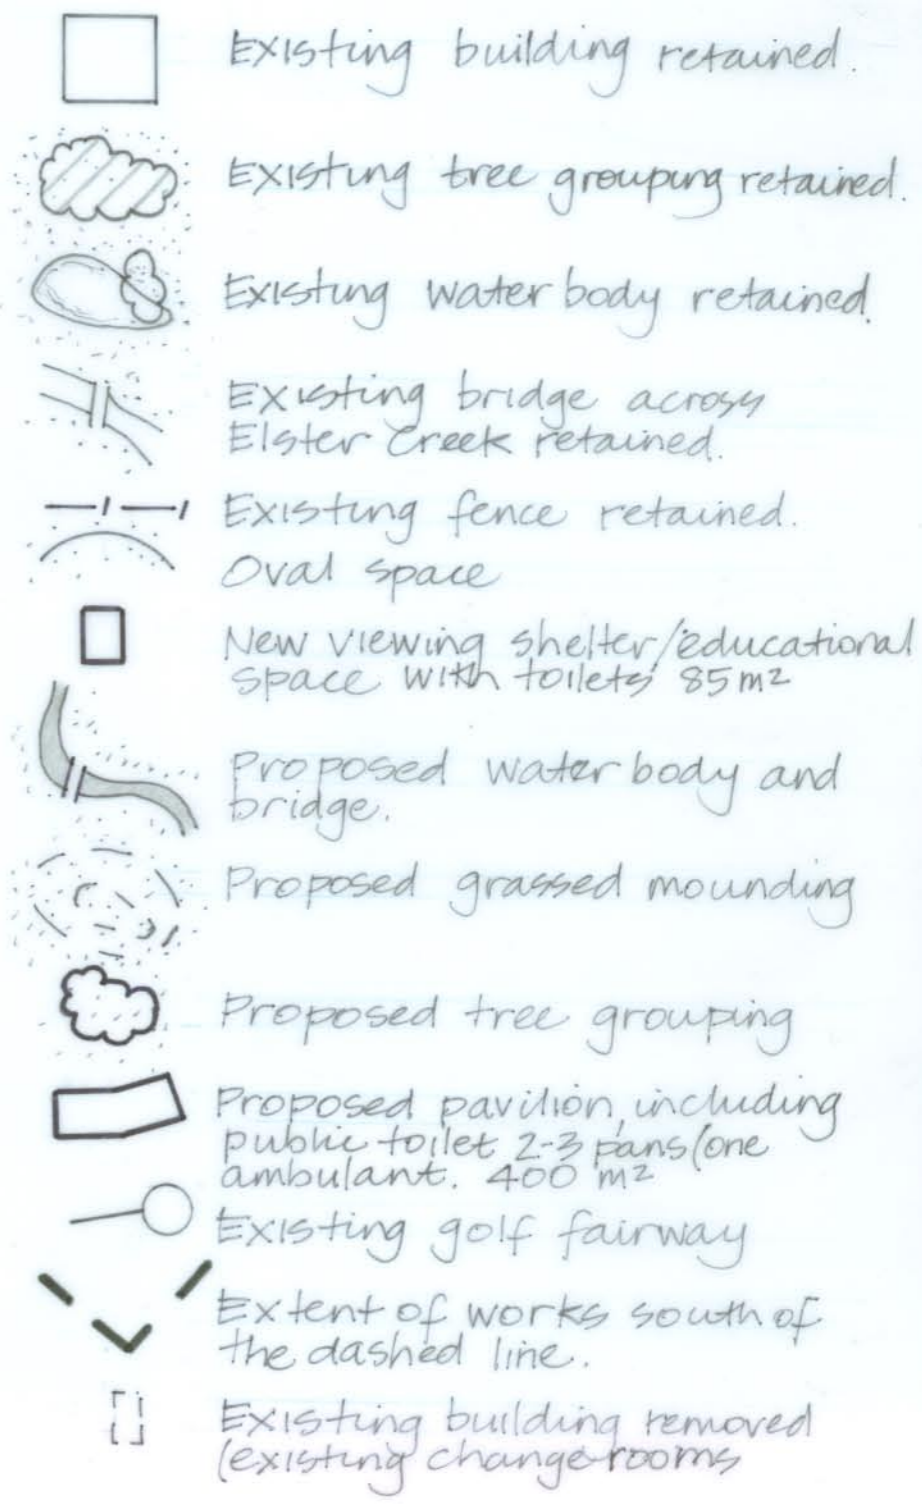 Existing building retained.
Existing tree grouping retained.
Existing water body retained.
Existing bridge across
Elster Creek retained.
Existing fence retained.
Oval space
New viewing shelter/educational
space with toilets 85m²
Proposed water body and
bridge.
Proposed grassed mounding
Proposed tree grouping
Proposed pavilion, including
public toilet 2-3 pans (one
ambulant. 400 m²
Existing golf fairway
Extent of works south of
the dashed line.
Existing building removed
(existing change rooms